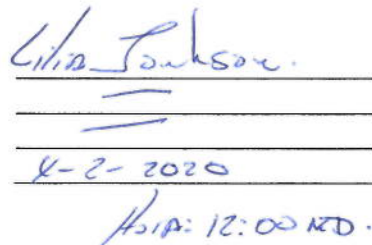 Lilia Jonhson.
4-2-2020
Hora: 12:00 MD.